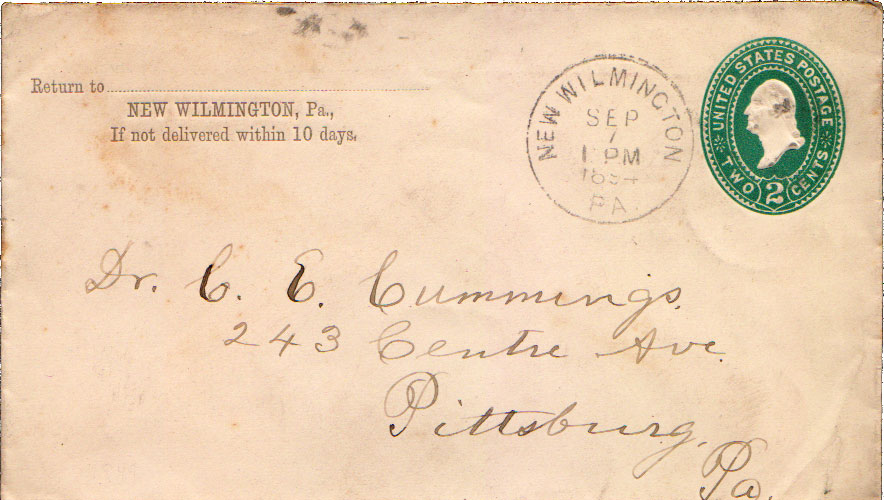 Return to
NEW WILMINGTON, Pa.,
If not delivered within 10 days.
NEW WILMINGTON
SEP
7
1 PM
1894
PA.
UNITED STATES POSTAGE
TWO 2 CENTS
Dr. C. E. Cummings.
243 Centre Ave.
Pittsburg,
Pa.